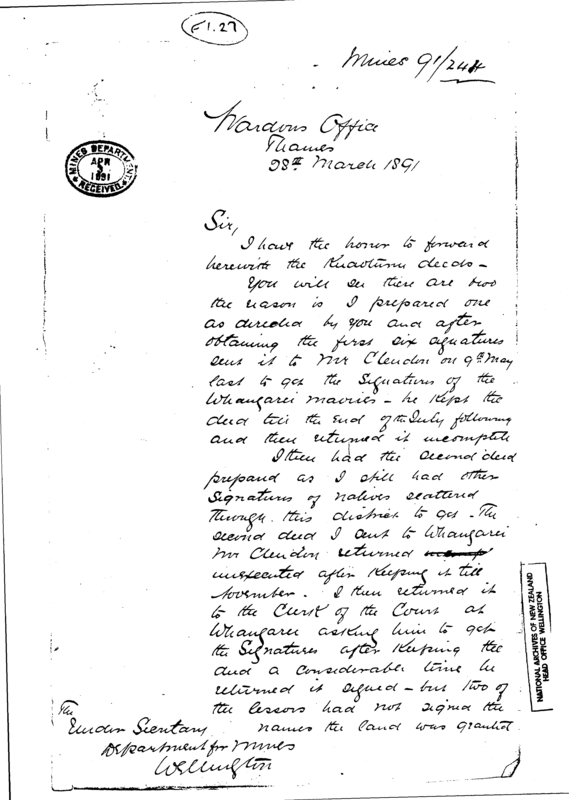 F1.27
Mines 91/244
Wardens Office
Thames
28th March 1891
MINES DEPARTMENT
APR
1891
RECEIVED
Sir,
I have the honor to forward
herewith the Kuaotunu deeds -
You will see there are two
the reason is I prepared one
as directed by you and after
obtaining the first six signatures
sent it to Mr Clendon on 9th May
last to get the Signatures of the
Whangarei maories - he kept the
deed till the End of the July following
and then returned it incomplete
I then had the second deed
prepared as I still had other
Signatures of natives scattered
through this district to get - The
second deed I sent to Whangarei
Mr Clendon returned
unexecuted after Keeping it till
November. I then returned it
to the Clerk of the Court at
Whangarei asking him to get
the Signatures after Keeping the
deed a considerable time he
returned it signed - but two of
the lessors had not signed the
names the land was granted
The
Under Secretary
Department for Mines
Wellington
NATIONAL ARCHIVES OF NEW ZEALAND
HEAD OFFICE WELLINGTON